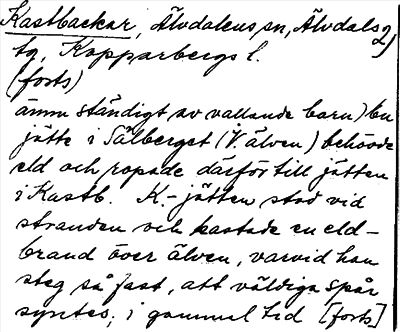 Kastbackar, Älvdalens sn, Älvdals 2)
tg, Kopparbergs l.
(forts)
ämn ständigt av vallande barn) En
jätte i Sälberget (V. älven) behövde
eld och ropade därför till jätten
i Kastb. K.-jätten stod vid
stranden och kastade en eld-
brand över älven, varvid han
steg så fast, att väldiga spår
syntes; i gammal tid [forts]